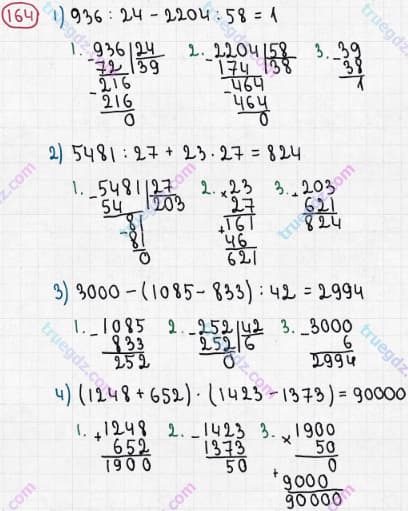 164 1) 936 : 24 - 2204 : 58 = 1
1. 936 | 24 2. 2204 | 58 3. 39
- 72 | 39 - 174 | 38 - 38
216 464 1
- 216 - 464
0 0
2) 5481 : 27 + 23 · 27 = 824
1. - 5481 | 27 2. × 23 3. 203
54 | 203 27 621
- 81 + 161 824
81 46
0 621
3) 3000 - (1085 - 833) : 42 = 2994
1. - 1085 2. - 252 | 42 3. - 3000
833 252 | 6 6
252 0 2994
4) (1248 + 652) · (1423 - 1373) = 90000
1. + 1248 2. - 1423 3. × 1900
652 1373 50
1900 50 0
+ 9000
90000
truegdz.com